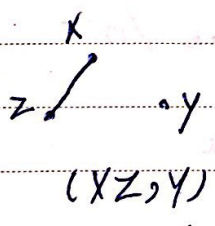 X
Z Y
(XZ, Y)